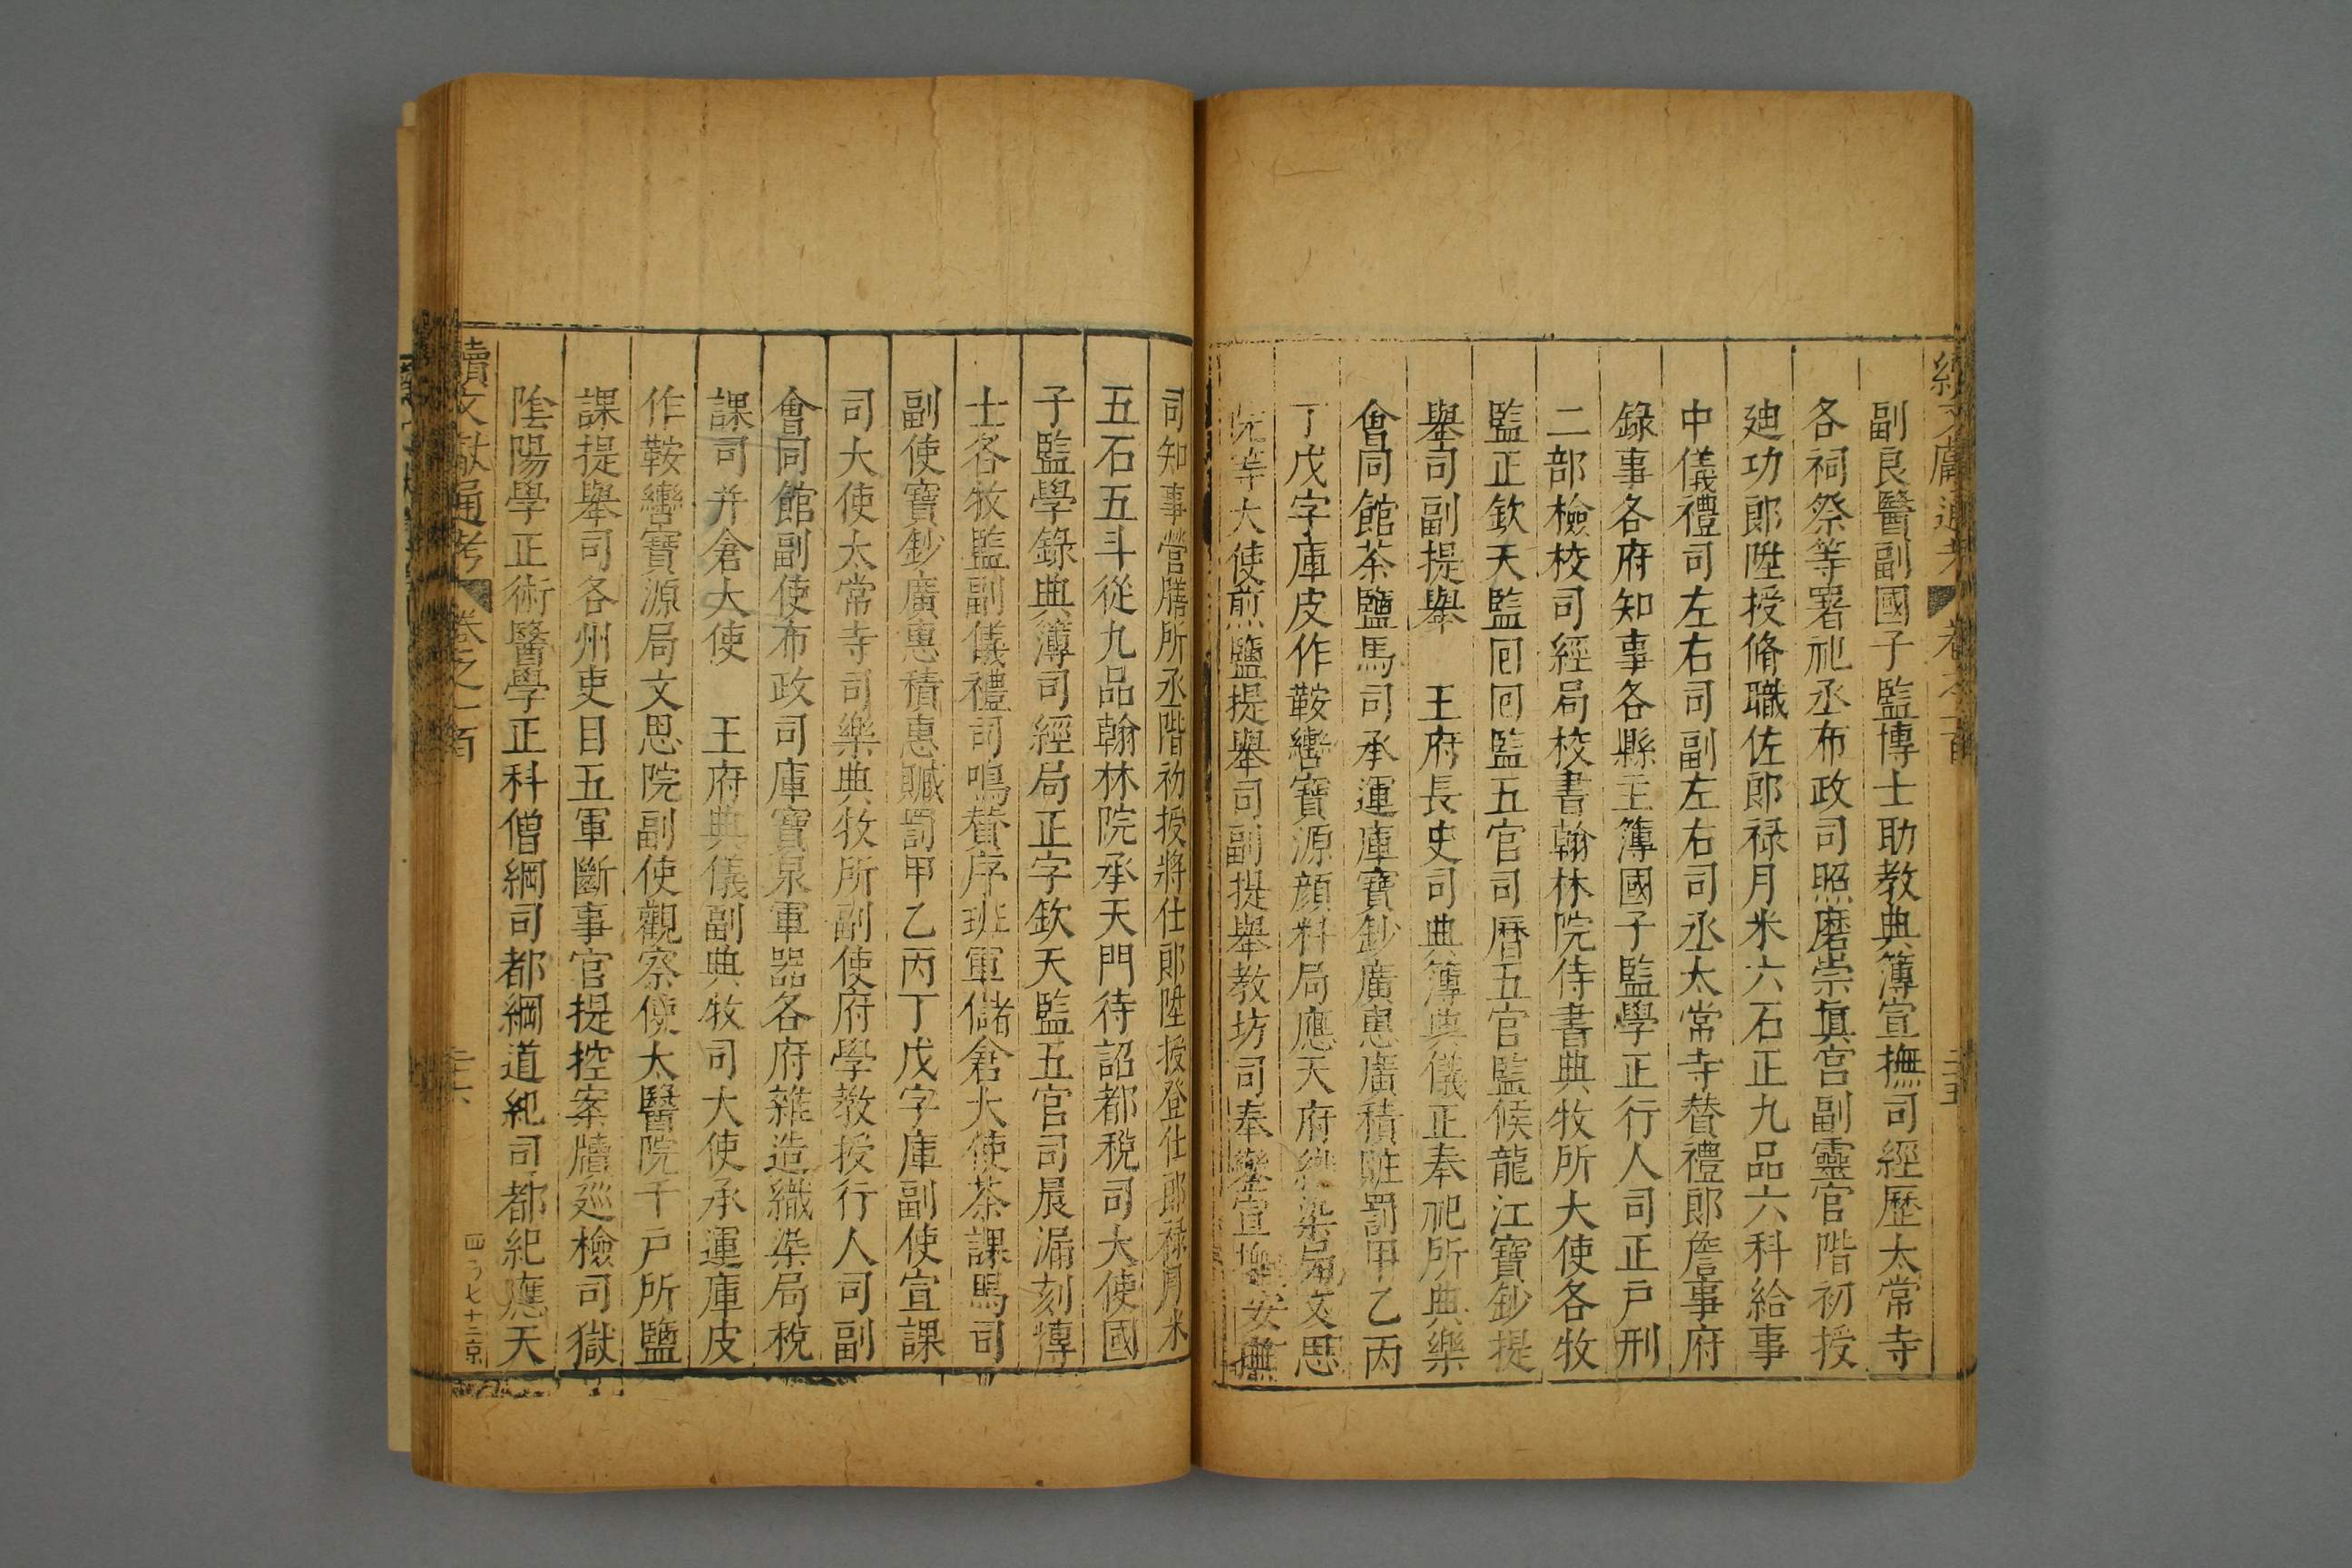 續文獻通考 卷之一百 二十五
副良醫副國子監博士助教典簿宣撫司經歷太常寺
各祠祭等署祀丞布政司照磨崇真宮副靈官階初授
廸功郎陞授脩職佐郎禄月米六石正九品六科給事
中儀禮司左右司副左右司丞太常寺替禮郎詹事府
錄事各府知事各縣主簿國子監學正行人司正戶刑
二部檢校司經局校書翰林院侍書典牧所大使各牧
監正欽天監囘囘監五官司曆五官監候龍江寶鈔提
舉司副提舉 王府長史司典簿典儀正奉祀所典樂
會同館茶鹽馬司承運庫寶鈔廣惠廣積賍罰甲乙丙
丁戊字庫皮作鞍轡寶源顔料局應天府織染局文思
院等大使煎鹽提舉司副提舉教坊司奉鑾宣撫安撫
司知事營膳所丞階初授將仕郎陞授登仕郎禄月米
五石五斗從九品翰林院承天門待詔都稅司大使國
子監學錄典簿司經局正字欽天監五官司晨漏刻博
士各牧監副儀禮司鳴贊序班軍儲倉大使茶課馬司
副使寶鈔廣惠積惠贓罰甲乙丙丁戊字庫副使宣課
司大使太常寺司樂典牧所副使府學教授行人司副
會同館副使布政司庫寶泉軍器各府雜造織染局稅
課司并倉大使 王府典儀副典牧司大使承運庫皮
作鞍轡寶源局文思院副使觀察使太醫院千戶所鹽
課提舉司各州吏目五軍斷事官提控案牘廵檢司獄
陰陽學正術醫學正科僧綱司都綱道紀司都紀應天
續文獻通考 卷之一百 二十六